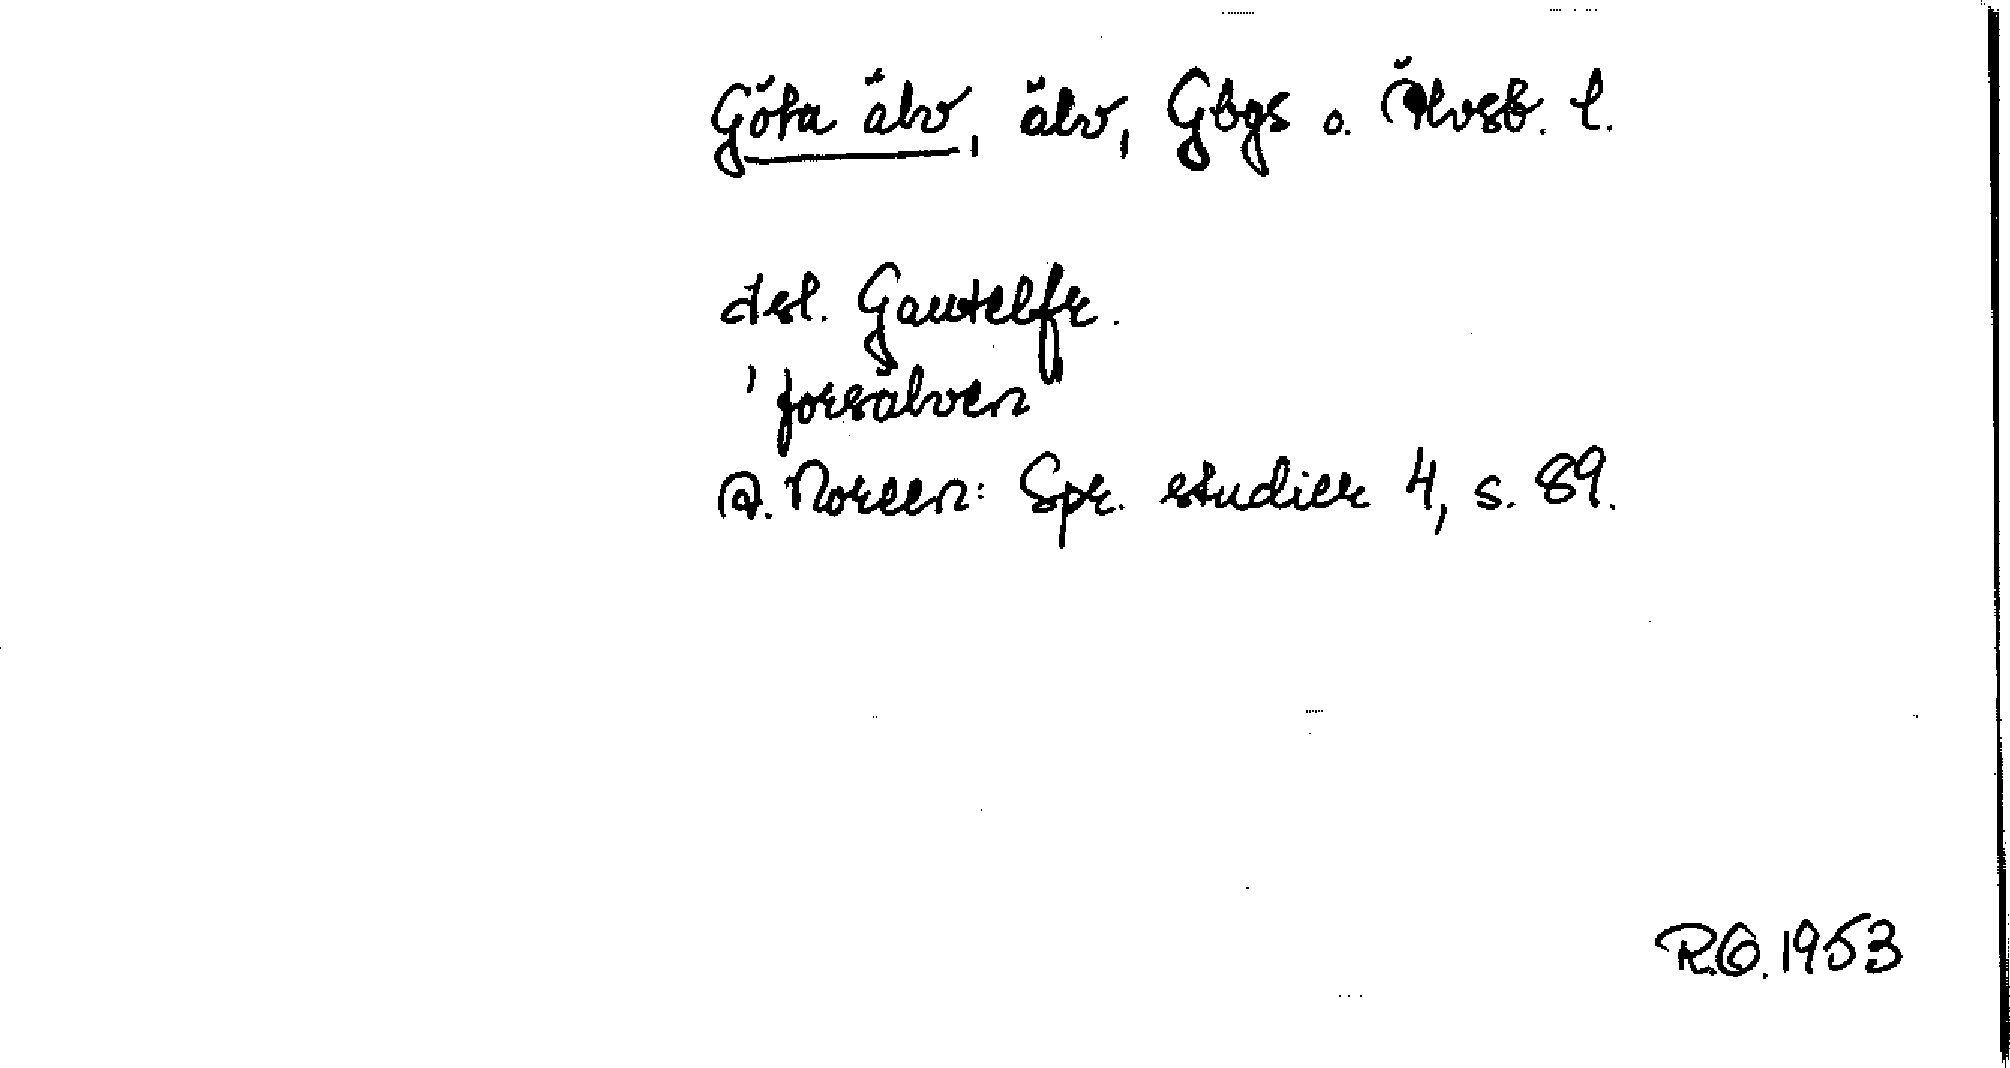 Göta älv, älv, Gbgs o. Älvsb. l.
isl. Gautelfr.
'forsälven
A. Noreen: Spr. studier 4, s. 89.
R.O. 1953